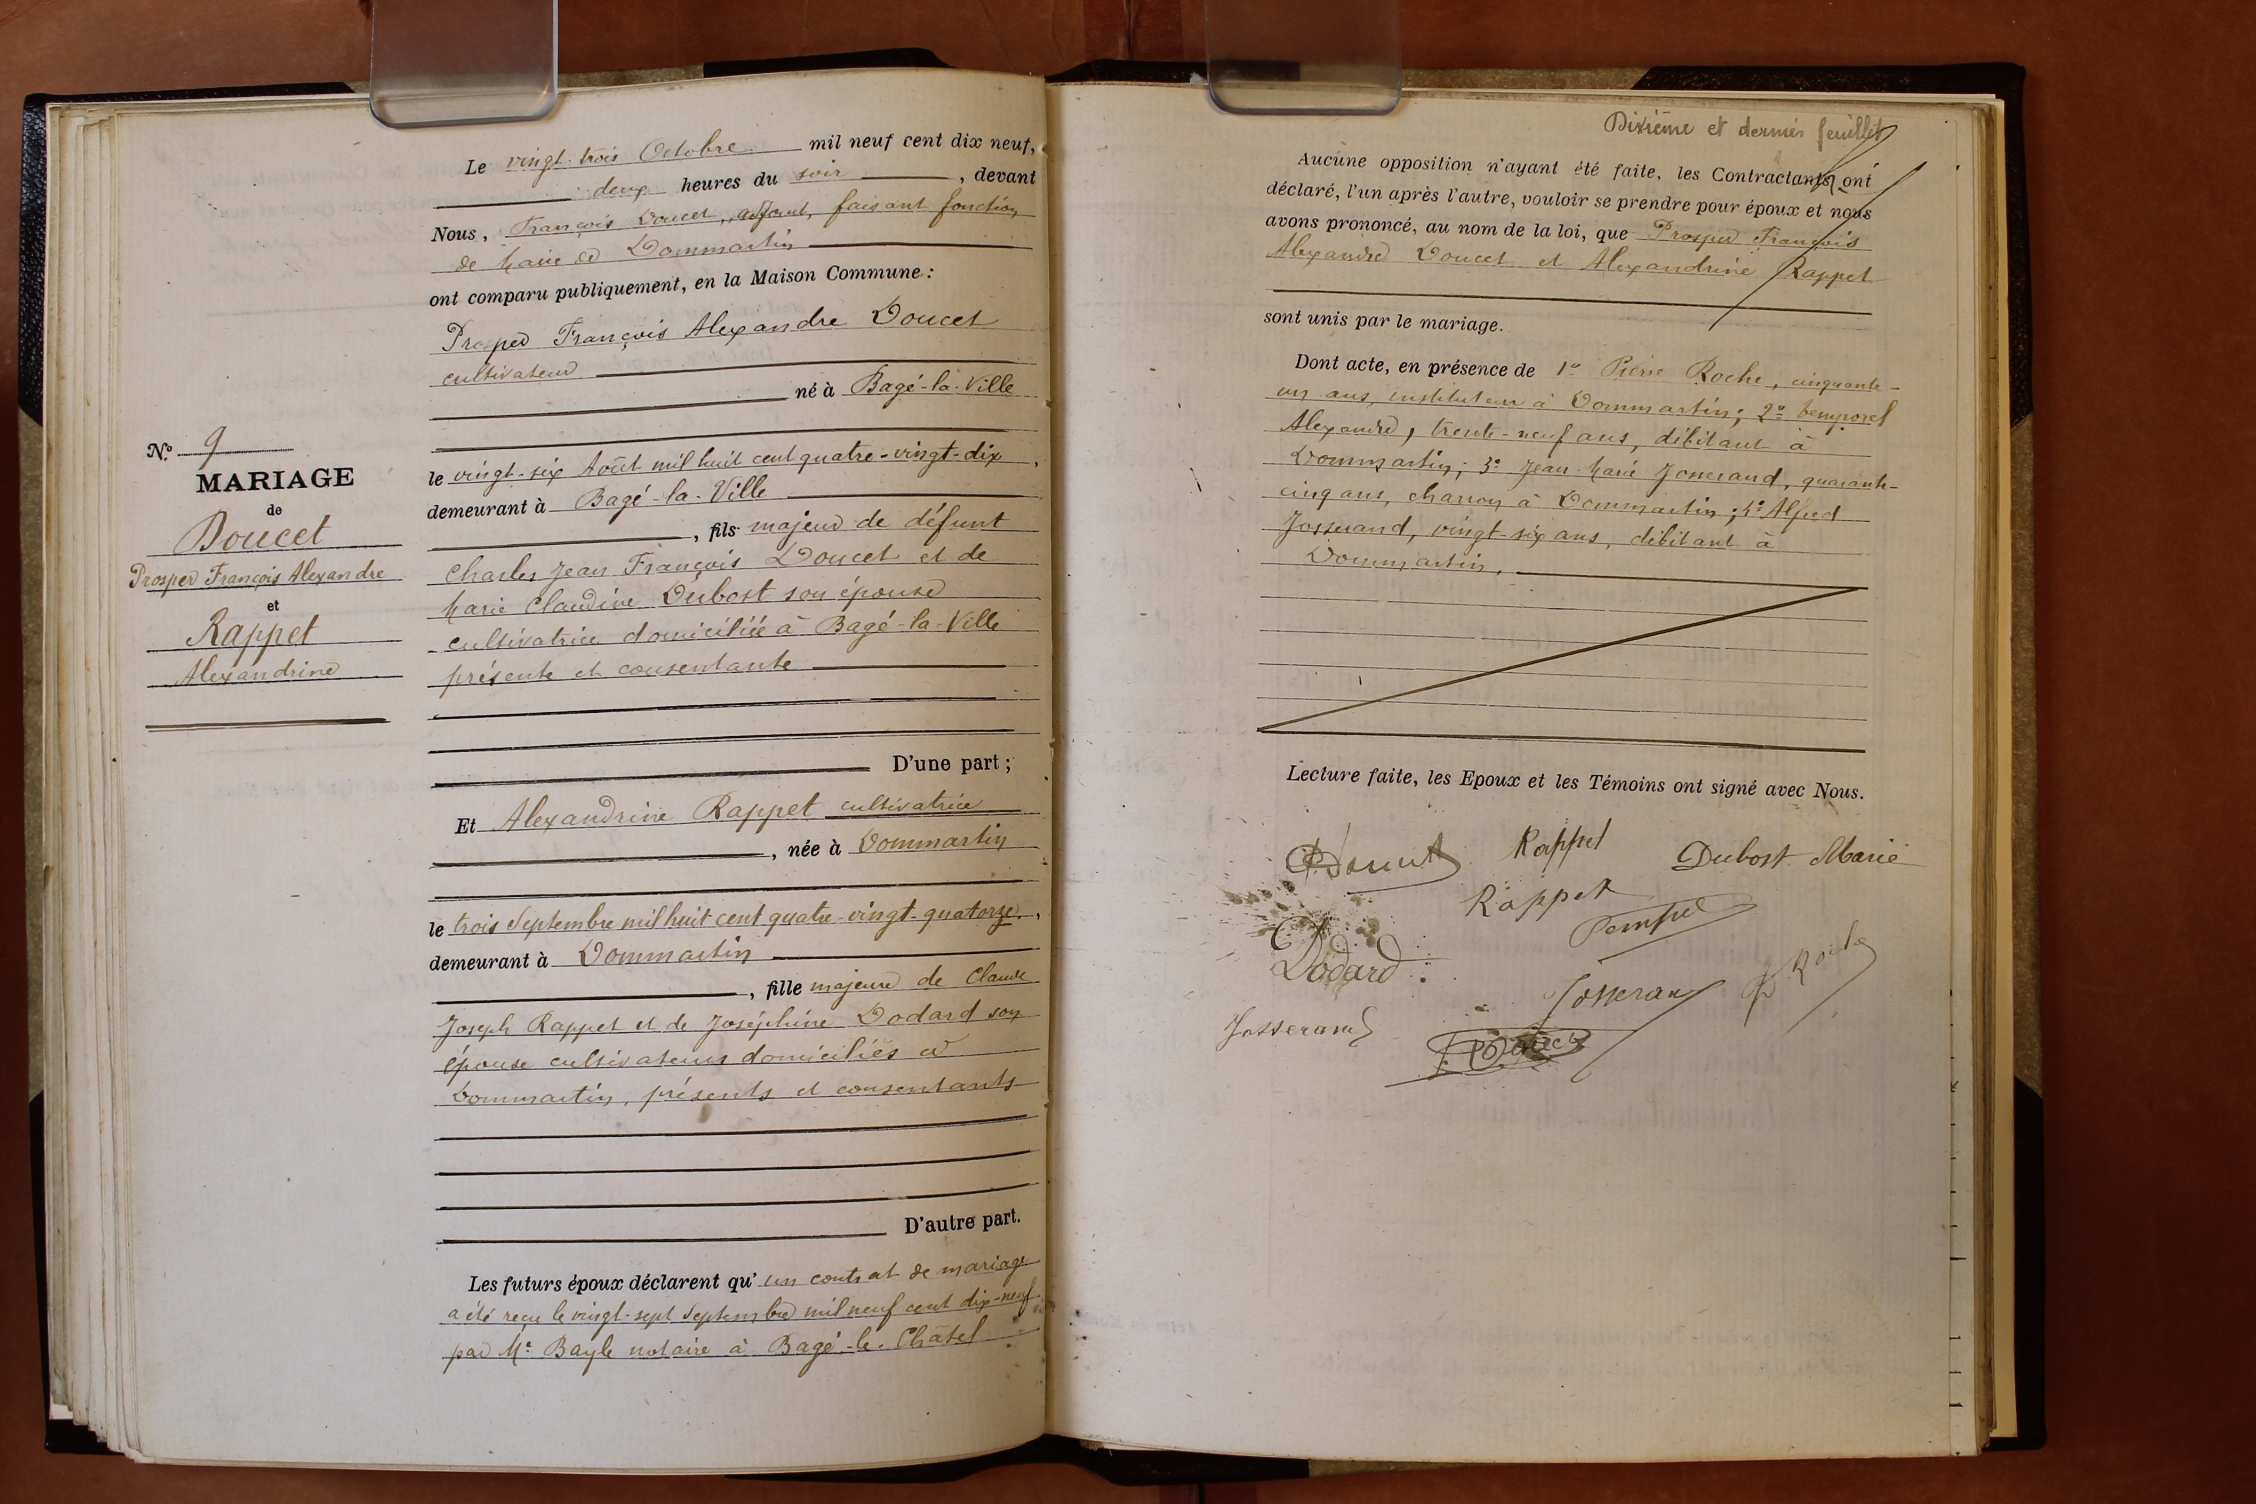 N.º 9
MARIAGE
de
Doucet
Prosper François Alexandre
et
Rappet
Alexandrine
Le vingt-trois Octobre mil neuf cent dix neuf,
deux heures du soir, devant
Nous, François Doucet, adjoint, faisant fonction
de Maire de Dommartin
ont comparu publiquement, en la Maison Commune :
Prosper François Alexandre Doucet
cultivateur
né à Bagé-la-Ville
le vingt-six Août mil huit cent quatre-vingt-dix,
demeurant à Bagé-la-Ville
, fils majeur de défunt
Charles Jean François Doucet et de
Marie Claudine Dubost son épouse
cultivatrice domiciliée à Bagé-la-Ville
présente et consentante
D'une part ;
Et Alexandrine Rappet cultivatrice
, née à Dommartin
le trois Septembre mil huit cent quatre-vingt-quatorze,
demeurant à Dommartin
, fille majeure de Claude
Joseph Rappet et de Joséphine Dodard son
épouse cultivateurs domiciliés à
Dommartin, présents et consentants
D'autre part.
Les futurs époux déclarent qu'un contrat de mariage
a été reçu le vingt-sept Septembre mil neuf cent dix-neuf
par Me Bayle notaire à Bagé-le-Châtel
Dixième et dernier feuillet
Aucune opposition n'ayant été faite, les Contractants ont
déclaré, l'un après l'autre, vouloir se prendre pour époux et nous
avons prononcé, au nom de la loi, que Prosper François
Alexandre Doucet et Alexandrine Rappet
sont unis par le mariage.
Dont acte, en présence de 1º Pierre Roche, cinquante-
un ans, instituteur à Dommartin ; 2º Temporel
Alexandre, trente-neuf ans, débitant à
Dommartin ; 3º Jean Marie Josserand, quarante-
cinq ans, charron à Dommartin ; 4º Alfred
Josserand, vingt-six ans, débitant à
Dommartin.
Lecture faite, les Epoux et les Témoins ont signé avec Nous.
Doucet Rappet Dubost Marie
Rappet
Dodard
Josserand P Roche
Josserand
F Doucet